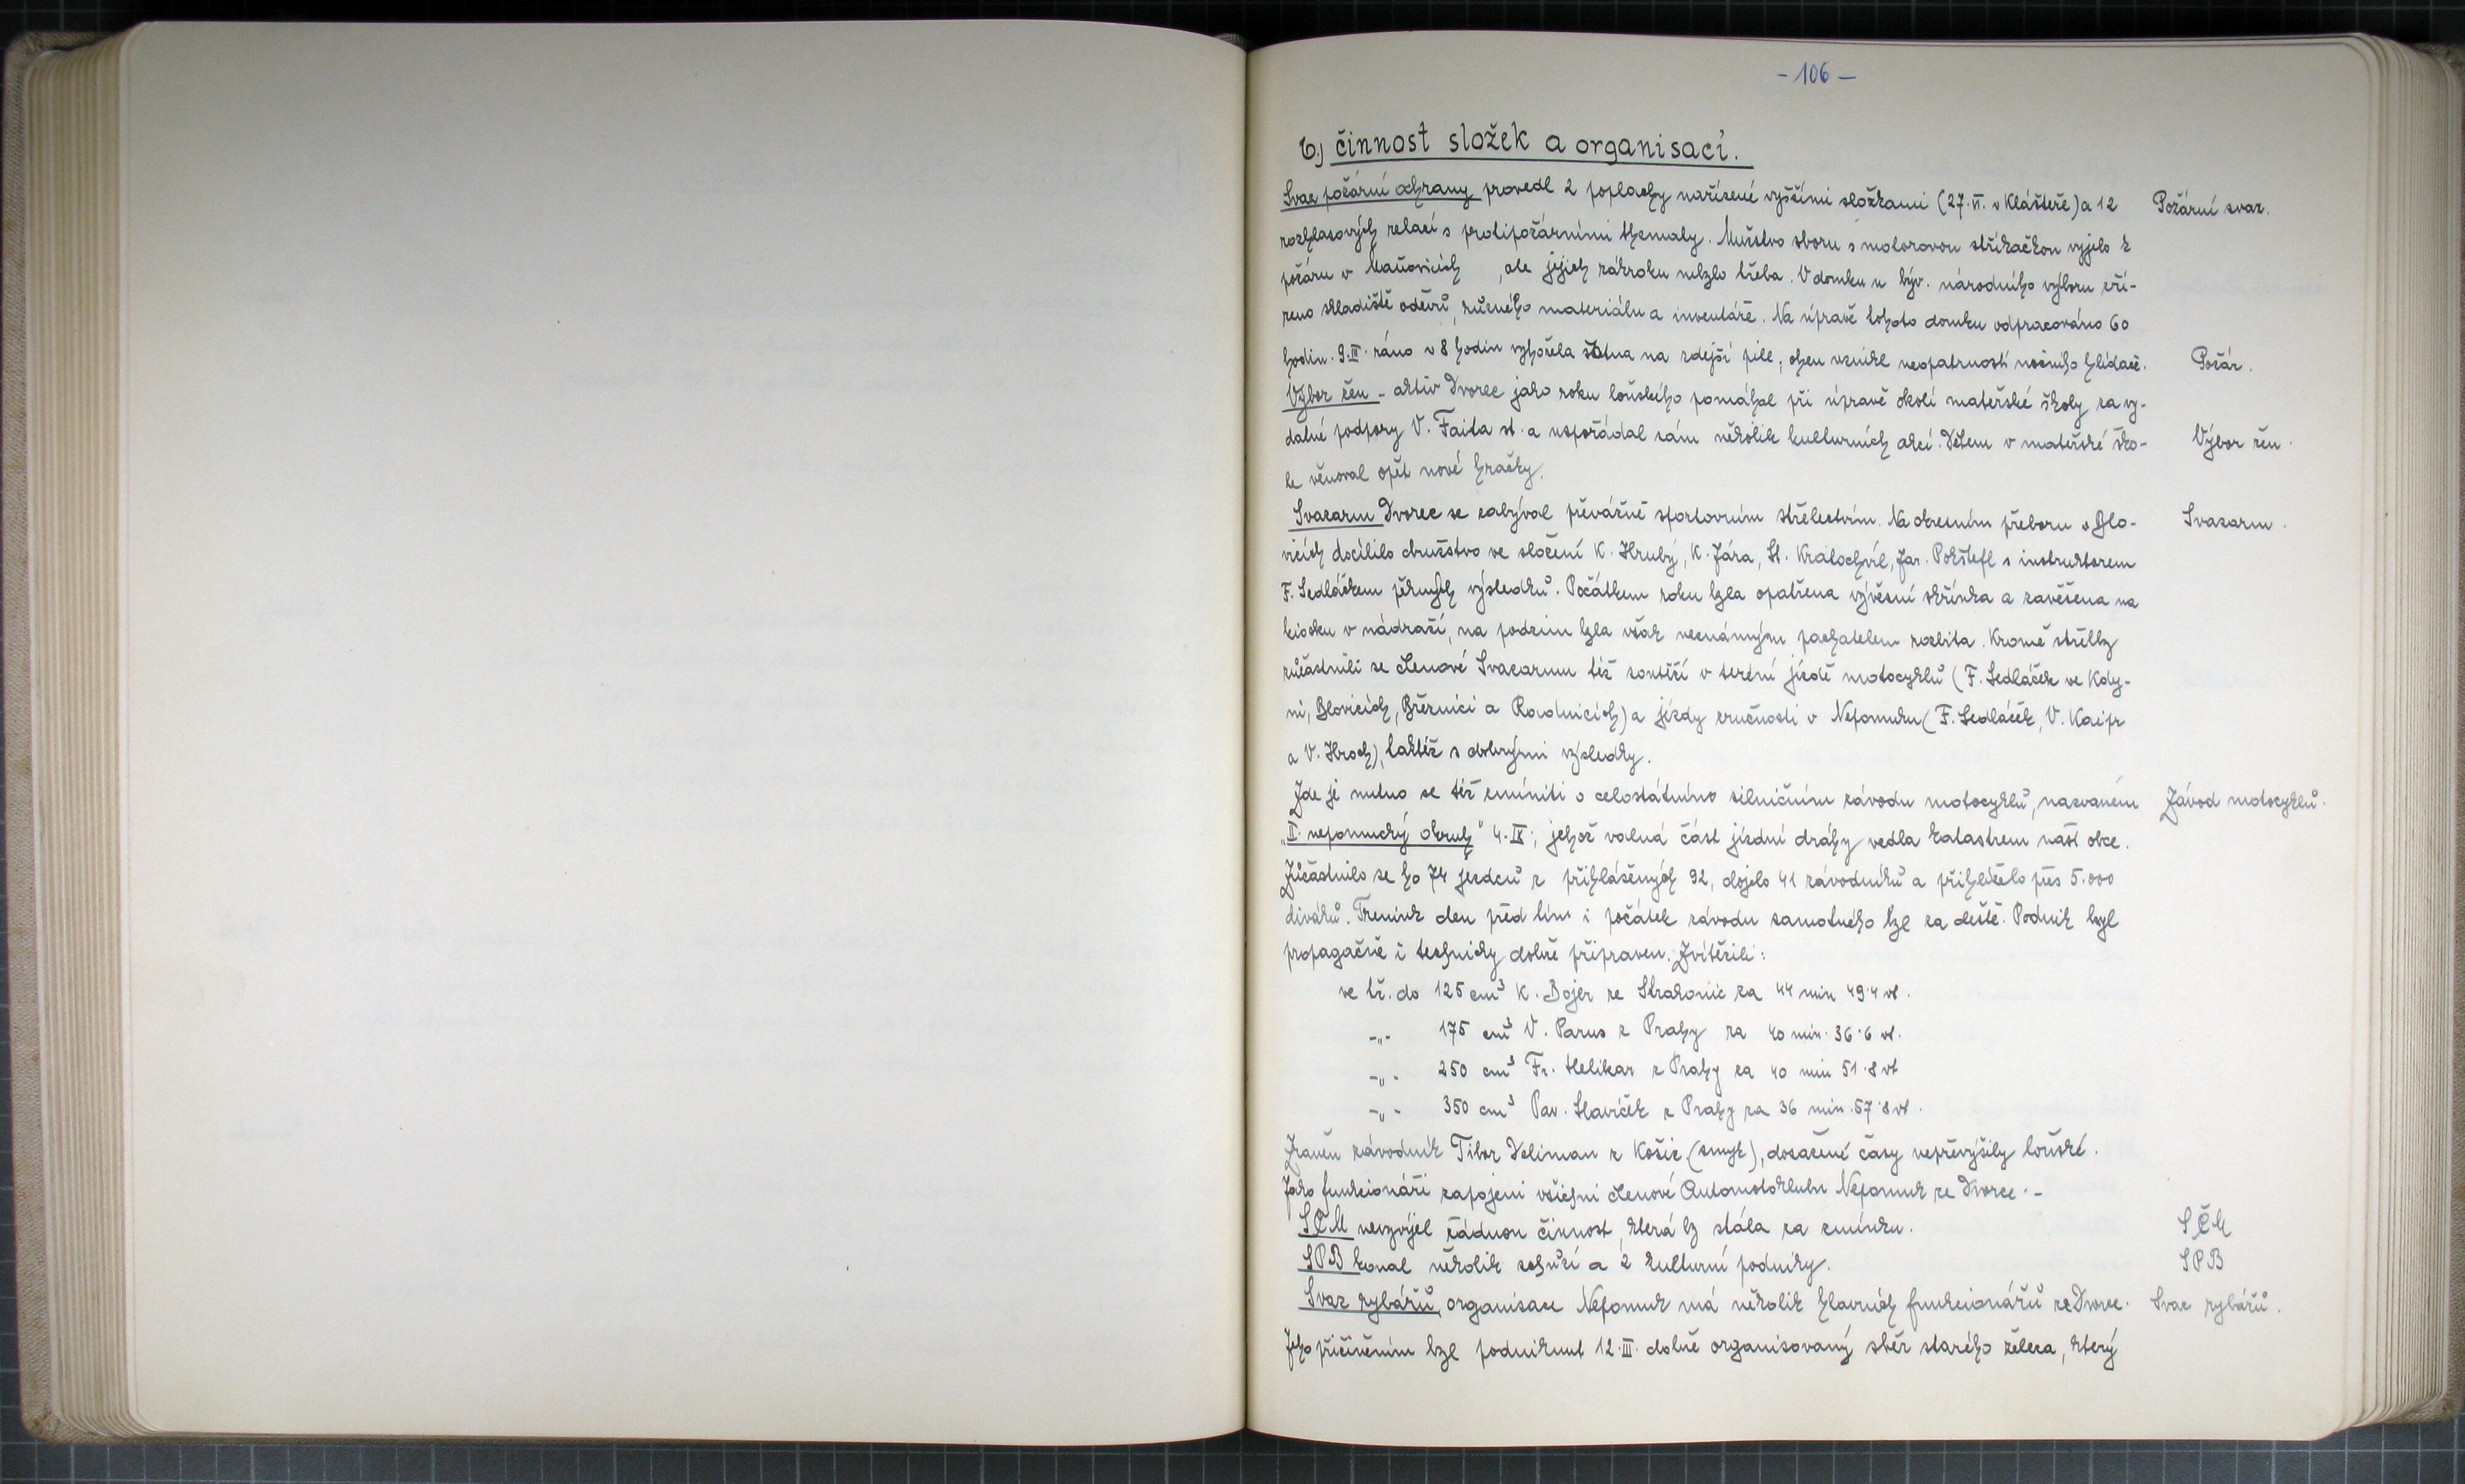 - 106 -
6.) činnost složek a organisací.
Svaz požární ochrany provedl 2 poplachy nařízené vyššími složkami (27.VI. v Klášteře) a 12
Požární svaz.
rozhlasových relací s protipožárními thematy. Mužstvo sboru s motorovou stříkačkou vyjelo k
požáru v Maňovicích , ale jejich zákroku nebylo třeba. V domku u býv. národního výboru zří-
zeno skladiště oděvů, ručného materiálu a inventáře. Na úpravě tohoto domku odpracováno 60
hodin. 9.III. ráno v 8 hodin vyhořela šatna na zdejší pile, oheň vznikl neopatrností nočního hlídače.
Požár.
Výbor žen - aktiv Dvorec jako roku loňského pomáhal při úpravě okolí mateřské školy za vy-
datné podpory V. Faita st. a uspořádal sám několik kulturních akcí. Dětem v mateřské ško-
Výbor žen.
le věnoval opět nové hračky.
Svazarm Dvorec se zabýval převážně sportovním střelectvím. Na okresním přeboru v Blo-
Svazarm.
vicích docílilo družstvo ve složení K. Hrubý, K. Jára, St. Kratochvíl, Jar. Pokštefl s instruktorem
F. Sedláčkem pěkných výsledků. Počátkem roku byla opatřena vývěsní skřínka a zavěšena na
kiosku v nádraží, na podzim byla však neznámým pachatelem rozbita. Kromě střelby
zúčastnili se členové Svazarmu též soutěží v terénní jízdě motocyklů (F. Sedláček ve Kdy-
ni, Blovicích, Březnici a Roudnicích) a jízdy zručnosti v Nepomuku (F. Sedláček, V. Kaipr
a V. Hroch), taktéž s dobrými výsledky.
Zde je nutno se též zmíniti o celostátním silničním závodu motocyklů, nazvaném
Závod motocyklů.
„II. nepomucký okruh" 4.IX., jehož valná část jízdní dráhy vedla katastrem naší obce.
Zúčastnilo se ho 74 jezdců z přihlášených 92, dojelo 41 závodníků a přihlíželo přes 5.000
diváků. Trenink den před tím i počátek závodu samotného byl za deště. Podnik byl
propagačně i technicky dobře připraven. Zvítězili:
ve tř. do 125 cm³ K. Bojer ze Strakonic za 44 min 49·4 vt.
-„- 175 cm³ V. Parus z Prahy za 40 min. 36·6 vt.
-„- 250 cm³ Fr. Helikar z Prahy za 40 min 51·8 vt
-„- 350 cm³ Pav. Slavíček z Prahy za 36 min. 57·8 vt.
Zraněn závodník Tibor Veliman z Košic (smyk), dosažené časy nepřevýšily loňské.
Jako funkcionáři zapojeni všichni členové Automotoklubu Nepomuk ze Dvorce.-
SČM nevyvíjel žádnou činnost, která by stála za zmínku.
SČM
SPB konal několik schůzí a 2 kulturní podniky.
SPB
Svaz rybářů, organisace Nepomuk má několik hlavních funkcionářů ze Dvorce.
Svaz rybářů.
Jeho přičiněním byl podniknut 12.III. dobře organisovaný sběr starého železa, který